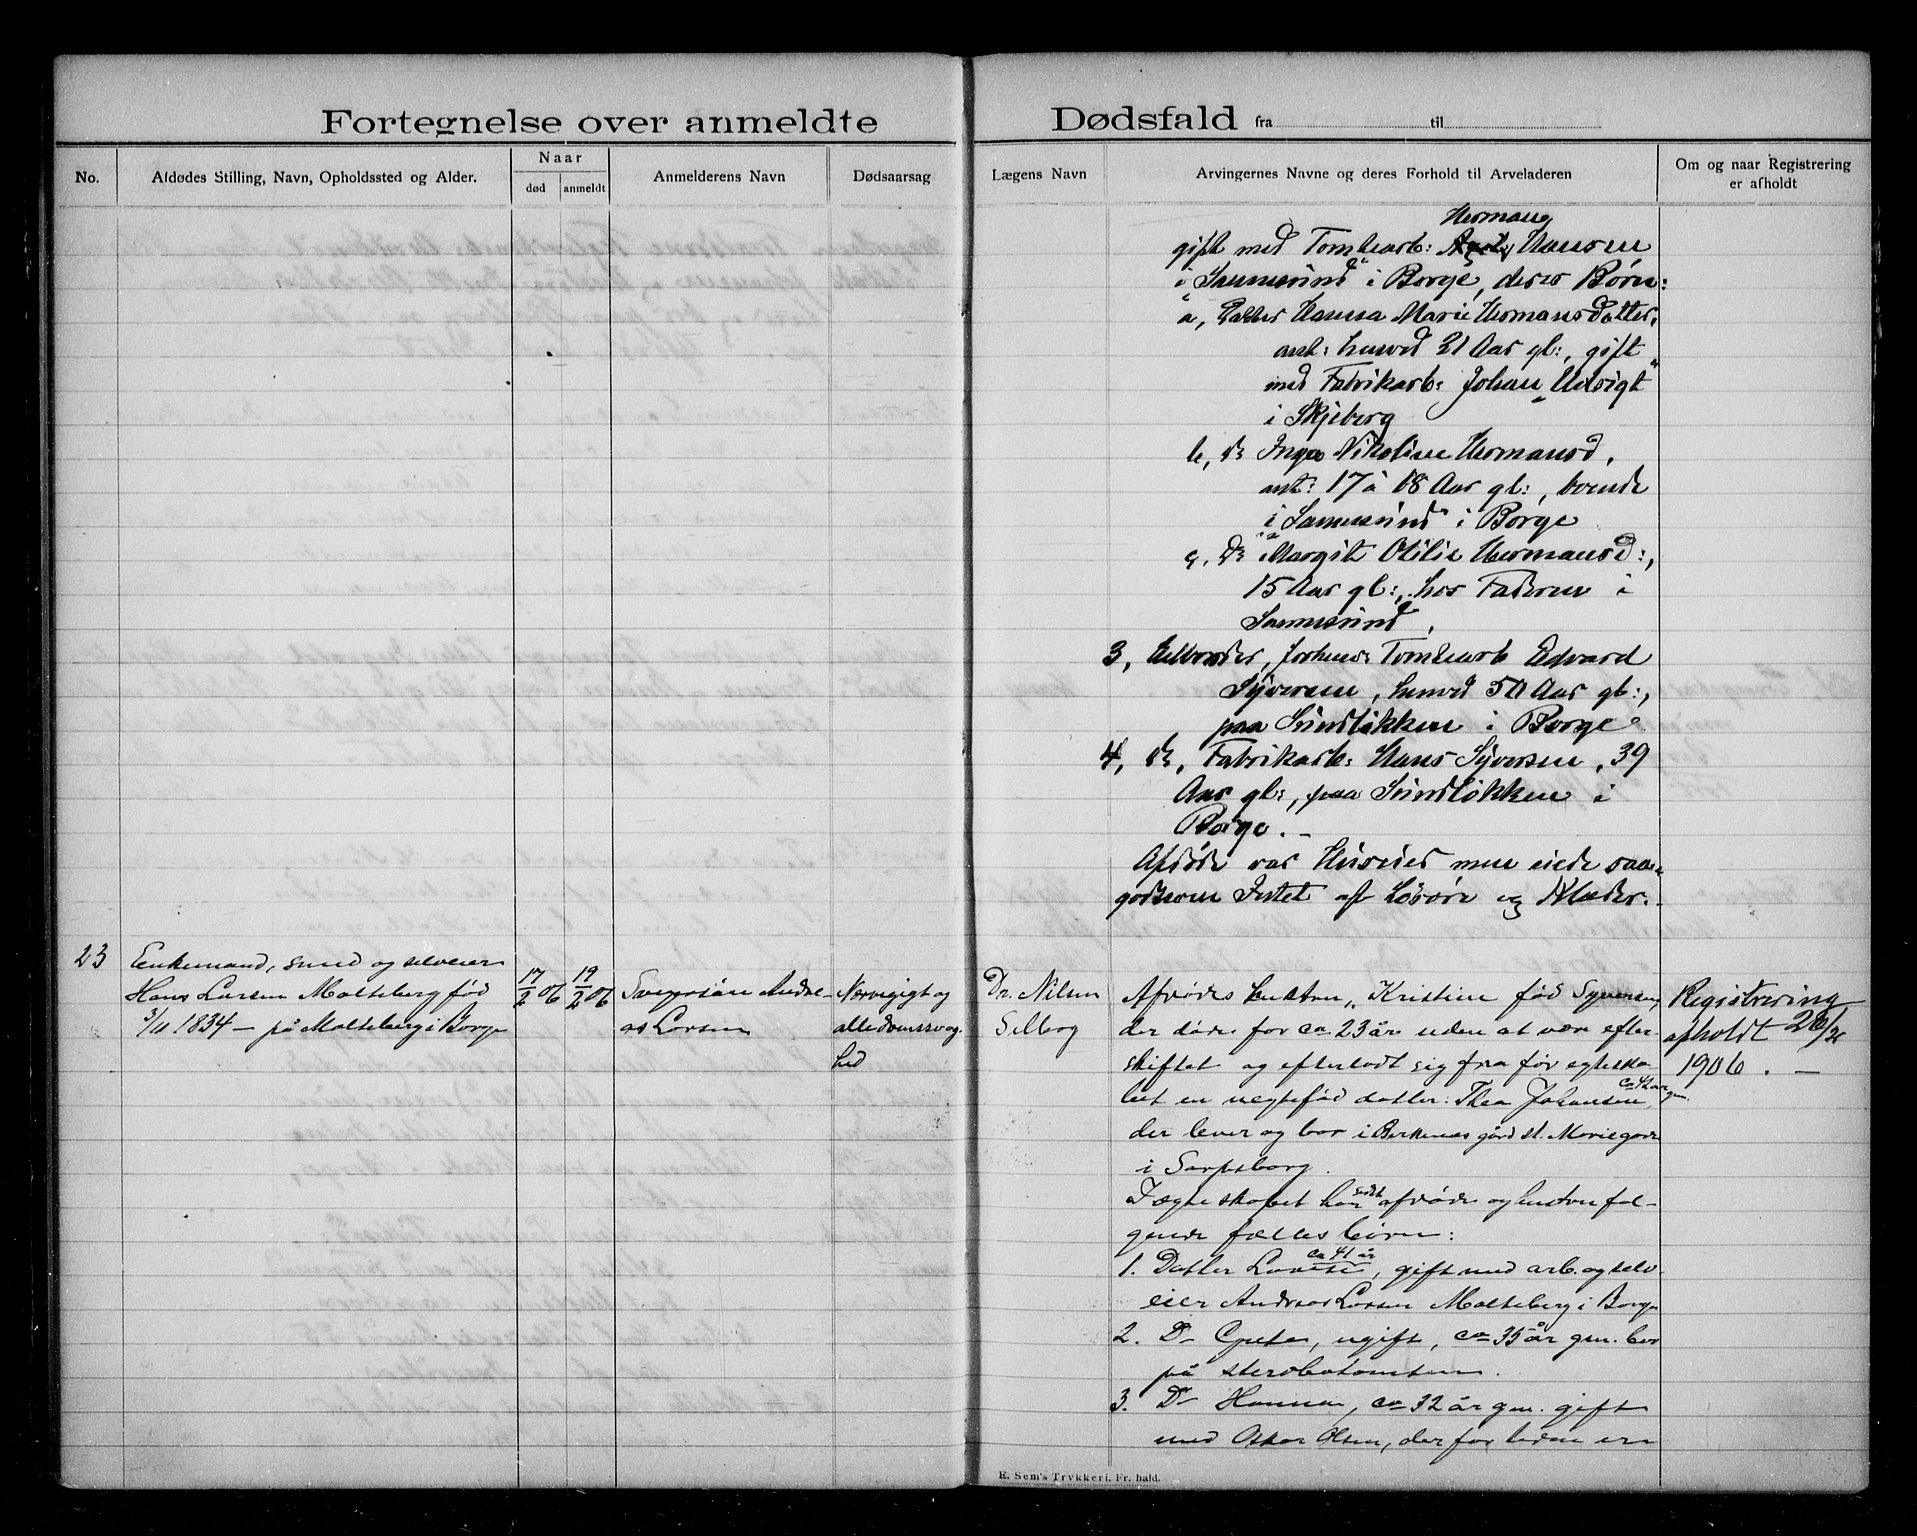 Fortegnelse over anmeldte Dødsfald fra til
No.
Afdødes Stilling, Navn, Opholdssted og Alder.
Naar
død
anmeldt
Anmelderens Navn
Dødsaarsag
Lægens Navn
Arvingernes Navne og deres Forhold til Arveladeren
Om og naar Registrering
er afholdt
Herman
gift med Tomtearb: Hansen
i Sannesund i Borge, deres Børn:
a, Datter Hanna Marie Hermansdatter,
ant: henved 21 Aar gl:, gift
med Fabrikarb: Johan Udsigt
i Skjeberg
b, do Inga Nikoline Hermansd,
ant: 17 à 18 Aar gl:, boende
i Sannesund i Borge
c, do Margit Otilie Hermansd:,
15 Aar gl:, hos Faderen i
Sannesund,
3, Tomtearb Edvard
Syversen, henved 50 Aar gl:,
paa Svindløkken i Borge
4, do, Fabrikarb: Hans Syversen, 39
Aar gl:, paa Svindløkken i
Borge. -
Afdøde var Huseier men eiede saa
godtsom Intet af Løsøre og Klæder.
23
Enkemand, smed og selveier
Hans Larsen Malteberg fød
3/11 1834 - på Malteberg i Borge
17/2 06
19/2 06
Svigersøn Andre-
as Larsen
Nervegigt og
alderdomssvag-
hed
Dr. Nilsen
Selborg
Afdødes hustru, Kristine fød Syversen,
der døde for ca 23 år uden at være efter-
skiftet og efterlodt sig fra før egteska-
bet en uegtefød datter: Thea Johansen, ca 42 aar gm.
der lever og bor i Berkenes gård st. Mariegade
i Sarpsborg.
I egteskabet har afdøde og hustru føl-
gende fælles børn:
1. Datter Lovise, ca 41 år, gift med arb. og selv-
eier Andreas Larsen Malteberg i Borge
2. Do ugift, ca 35 år gm. bor
på sterbotomten.
3. Do Hanna, ca 32 år gm. gift
med Oskar Olsen, der for tiden er
Registrering
afholdt
1906. -
E. Sem's Trykkeri, Fr.hald.